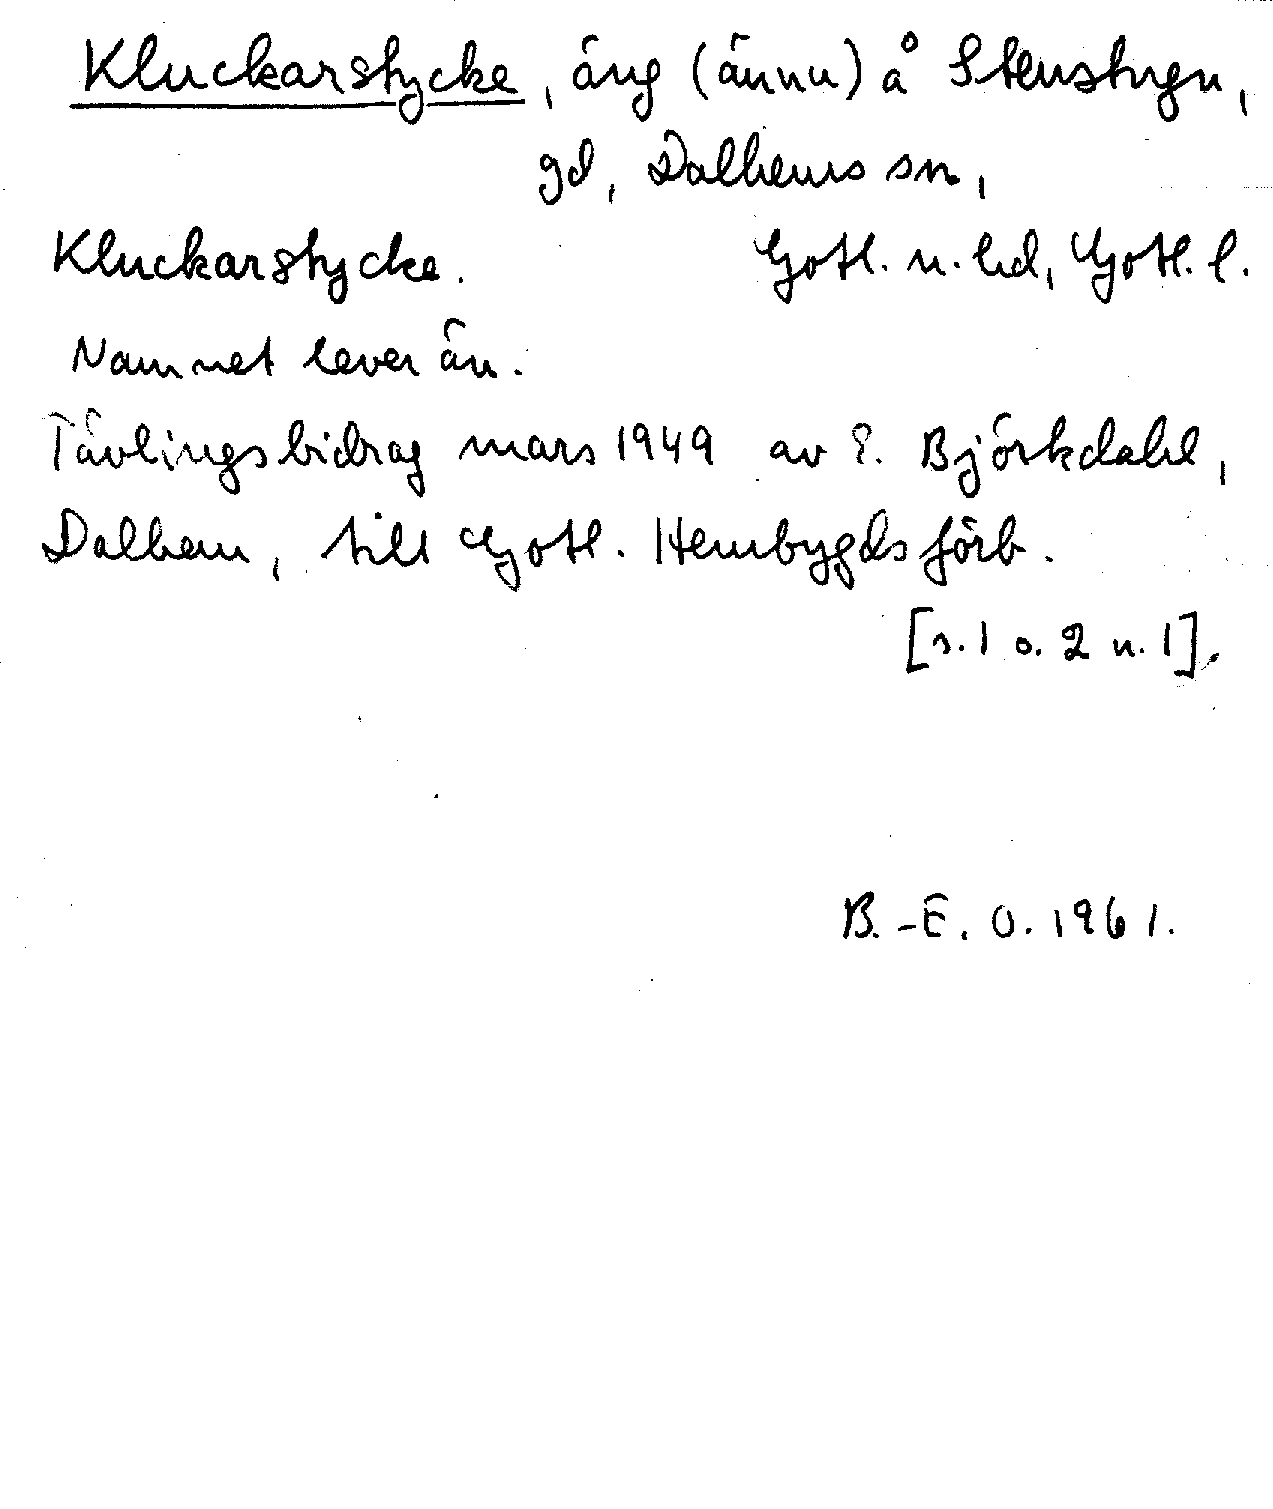 Kluckarstycke, äng (ännu) å Stenstugu,
gd, Dalhems sn,
Kluckarstycke. Gotl. n. hd, Gotl. l.
Namnet lever än.
Tävlingsbidrag mars 1949 av E. Björkdahl,
Dalhem, till Gotl. Hembygdsförb.
[s. 1 o. 2 n. 1].
B.-E. O. 1961.